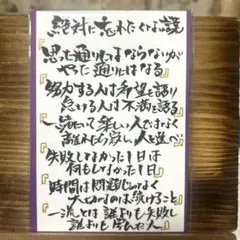 絶対に忘れたくない話
『思った通りにはならないが
やった通りにはなる』
『努力する人は希望を語り
怠ける人は不満を語る』
『一緒にいて楽しい人ではなく
離れたら寂しい人を選べ』
『失敗しなかった1日は
何もしなかった1日』
『時間は問題じゃなく
大切なのは続けること』
『一流とは誰よりも失敗し
誰よりも学んだ人』